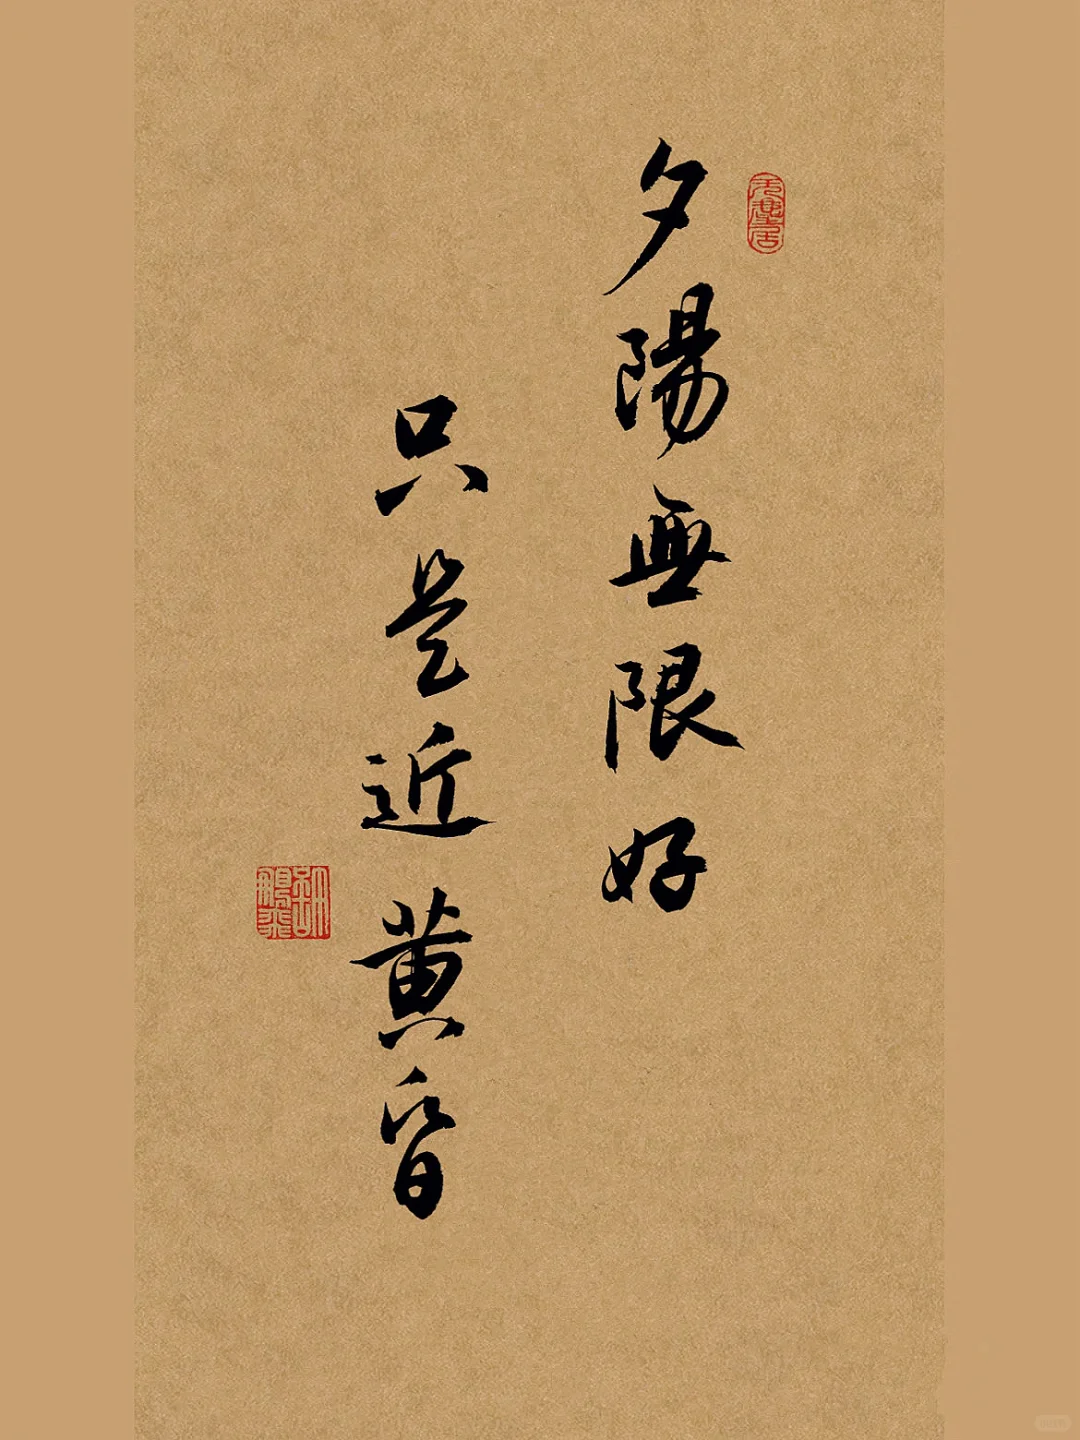 夕陽無限好
只是近黄昏